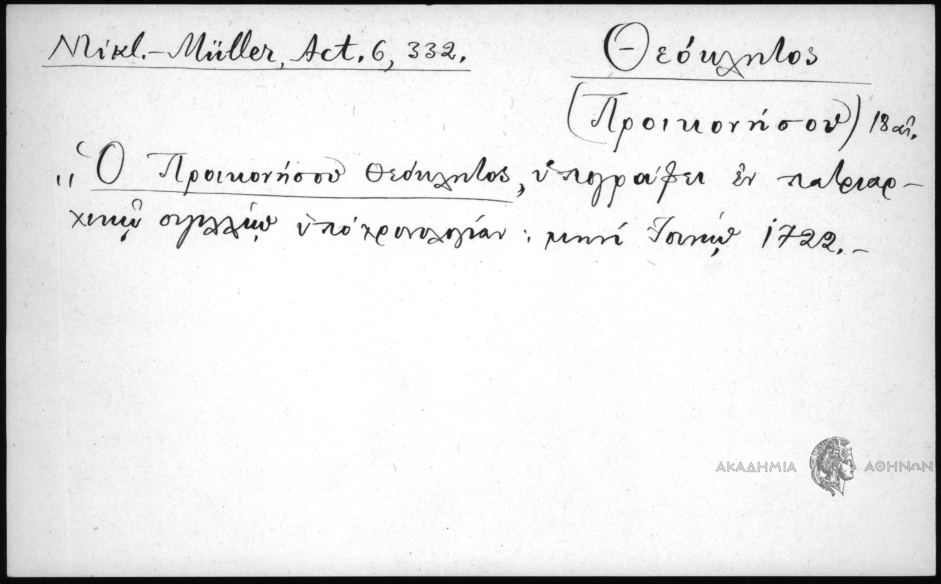 Mikl.-Müller, Act. 6, 332.
Θεόκλητος
(Προικονήσου) 18 αἰ.
„Ὁ Προικονήσου Θεόκλητος, ὑπογράφει ἐν πατριαρ-
χικῷ σιγιλλίῳ ὑπό χρονολογίαν: μηνί Ἰουνίῳ 1722.-
ΑΚΑΔΗΜΙΑ ΑΘΗΝΩΝ